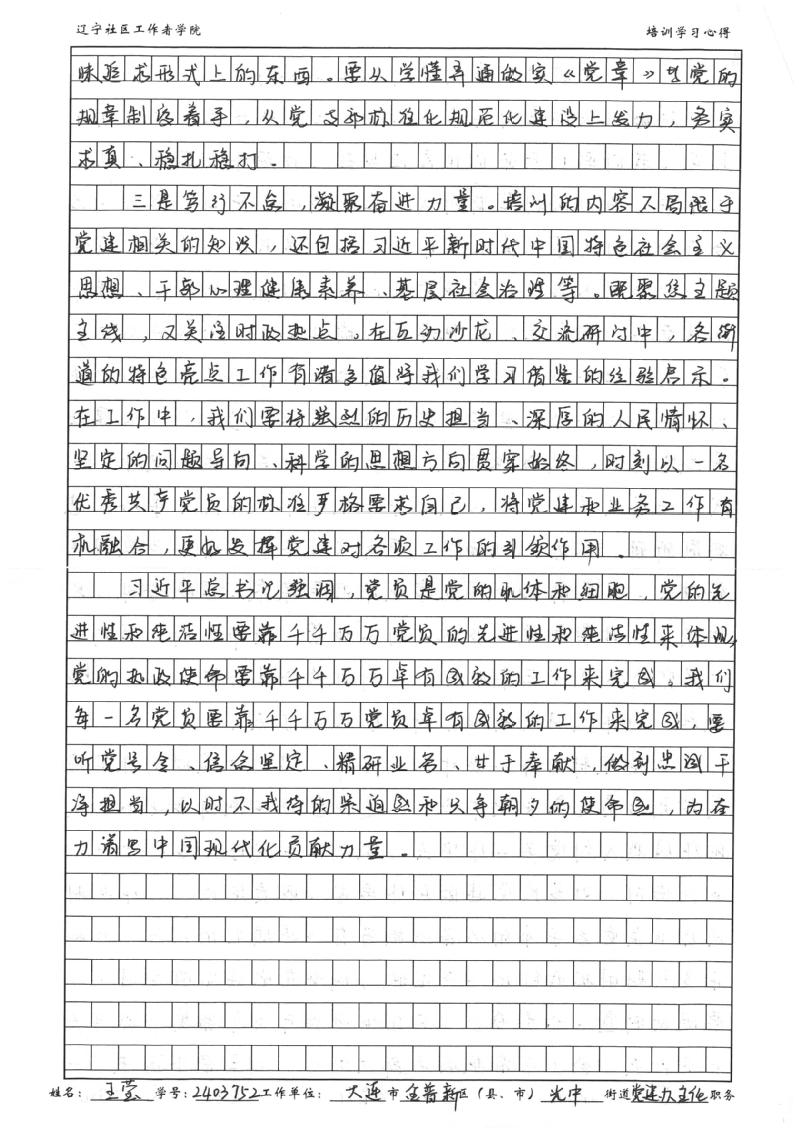 辽宁社区工作者学院 培训学习心得
味追求形式上的东西。要从学懂弄通做实《党章》等党的
规章制度着手，从党支部标准化规范化建设上发力，务实
求真、稳扎稳打．
三是笃行不怠，凝聚奋进力量。培训的内容不局限于
党建相关的知识，还包括习近平新时代中国特色社会主义
思想、干部心理健康素养、基层社会治理等。既聚焦主题
主线，又关注时政热点。在互动沙龙、交流研讨中，各街
道的特色亮点工作有诸多值得我们学习借鉴的经验启示。
在工作中，我们要将强烈的历史担当、深厚的人民情怀、
坚定的问题导向、科学的思想方向贯穿始终，时刻以一名
优秀共产党员的标准严格要求自己，将党建和业务工作有
机融合，更好发挥党建对各项工作的引领作用．
习近平总书记强调，党员是党的肌体和细胞，党的先
进性和纯洁性要靠千千万万党员的先进性和纯洁性来体现，
党的执政使命要靠千千万万卓有成效的工作来完成。我们
每一名党员要靠千千万万党员卓有成效的工作来完成，要
听党号令、信念坚定、精研业务、甘于奉献，做到忠诚干
净担当，以时不我待的紧迫感和只争朝夕的使命感，为在
力谱写中国现代化贡献力量．
姓名：王莹 学号：2403752 工作单位：大连市金普新区（县、市）光中街道党建办主任职务